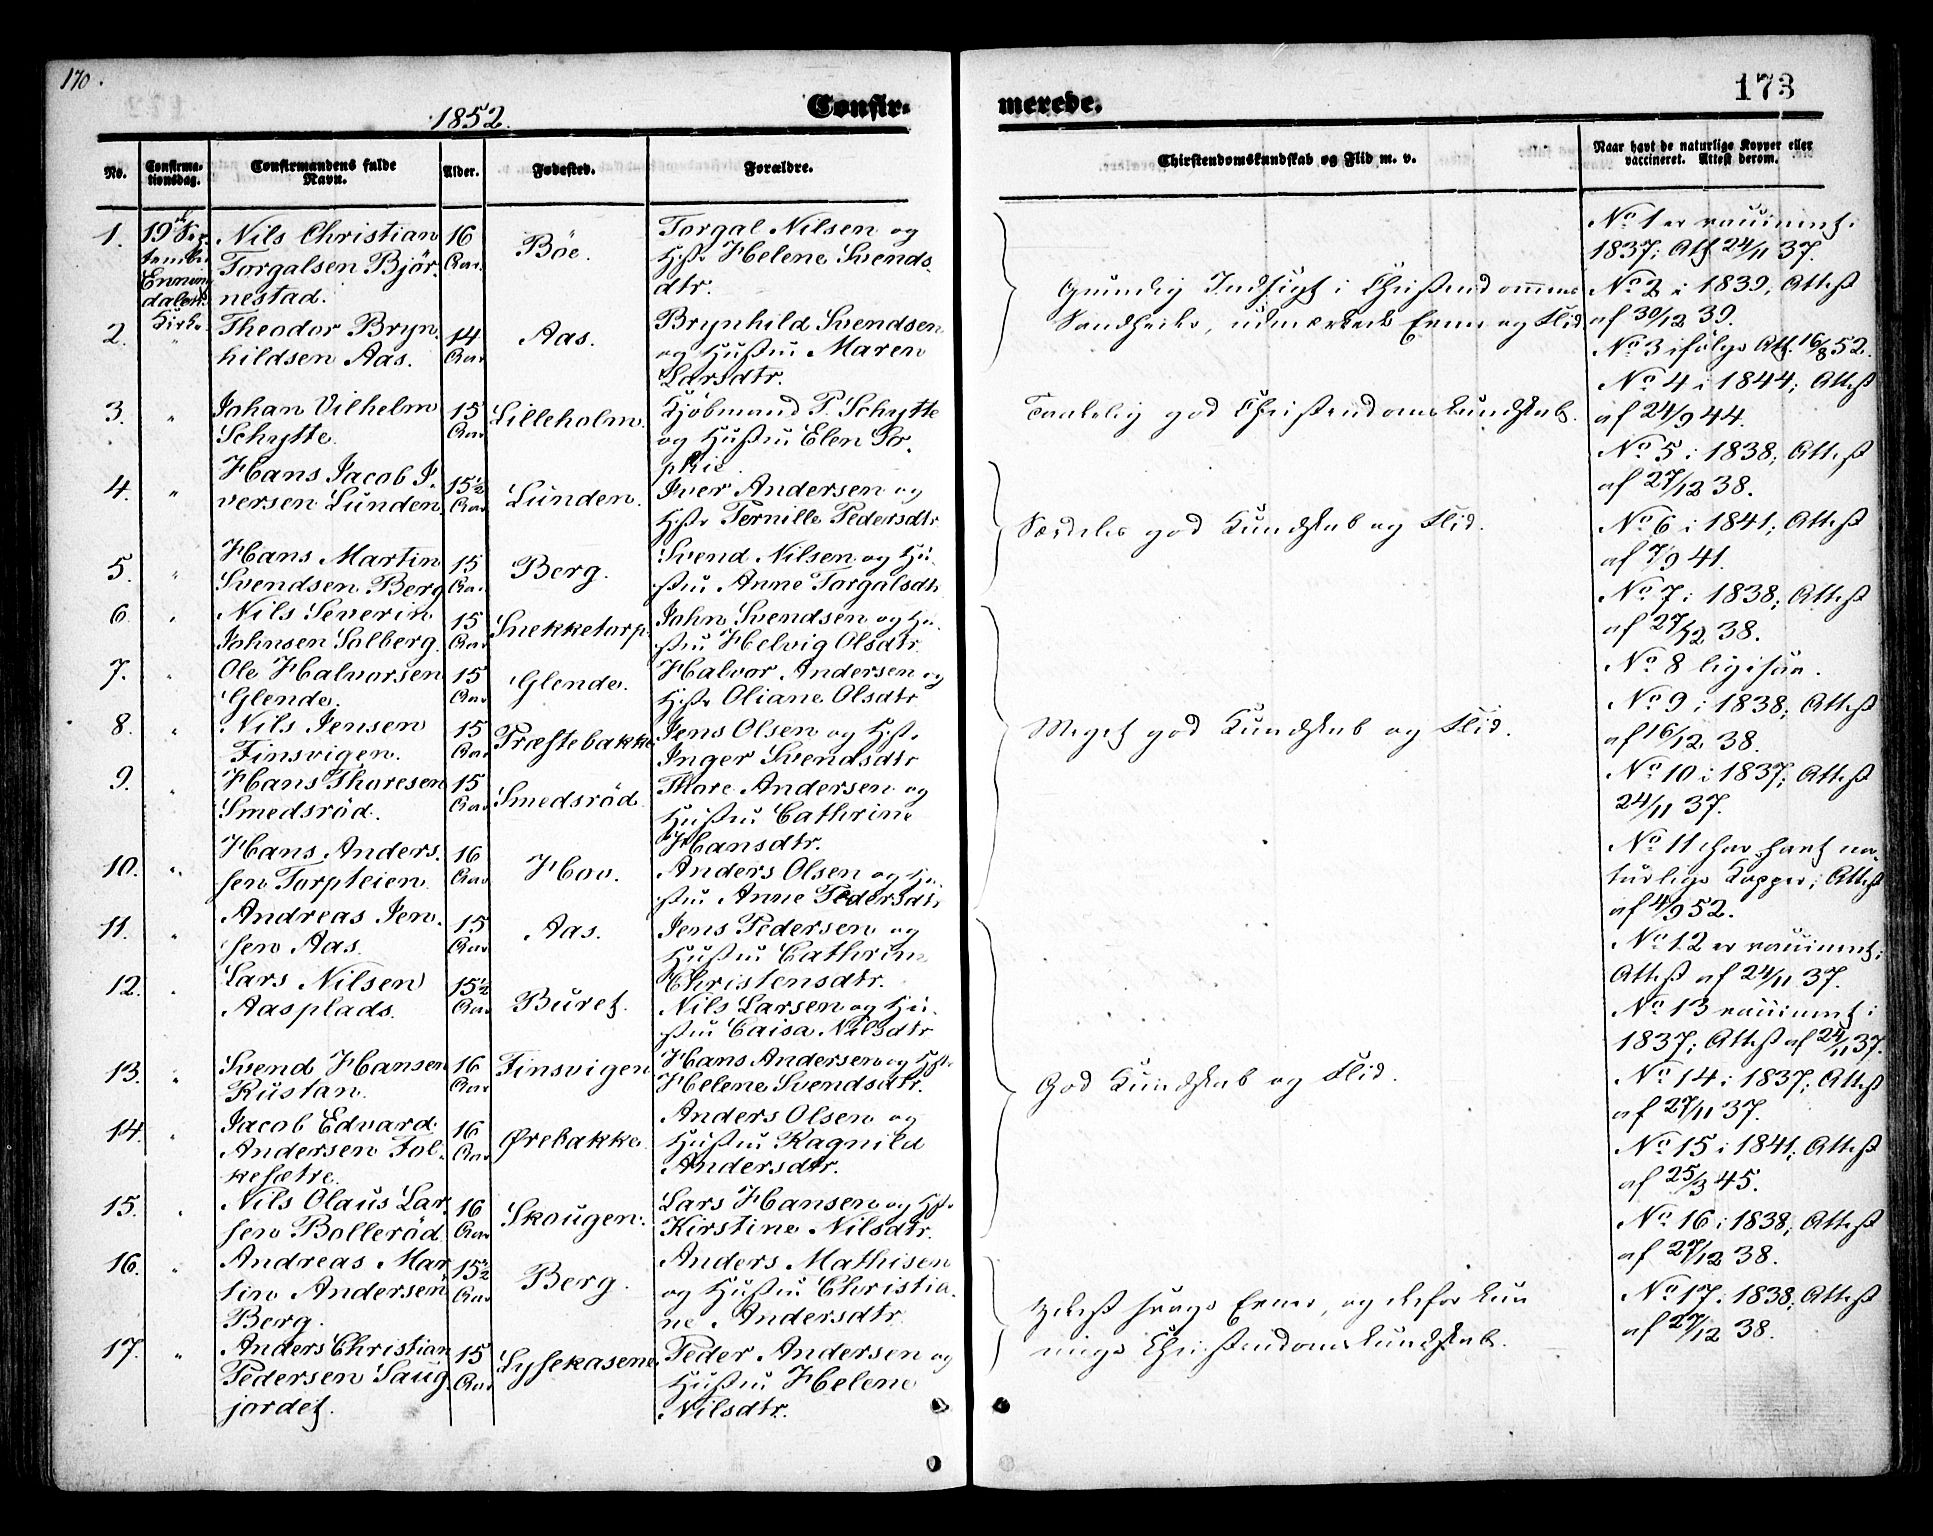 170.
173
1852.
Confir-
merede.
No.
Confirma-
tionsdag.
Confirmandens fulde
Navn.
Alder.
Fødested.
Forældre.
Chirstendomskundskab og Flid m. v.
Naar havt de naturlige Kopper eller
vaccineret. Attest derom.
1.
19de Sep-
tember
Enning
dalens
Kirke
Nils Christian
Torgalsen Björ-
nestad.
16
Aar.
Böe.
Torgal Nilsen og
Hst. Helene Svends-
dtr.
2.
"
Theodor Bryn-
hildsen Aas.
14
Aar
Aas.
Brynhild Svendsen
og Hustru Maren
Larsdtr.
3.
"
Johan Vilhelm
Schytte.
15
Aar
Lilleholm.
Kjöbmand P. Schytte
og Hustru Elen So-
phie
4.
"
Hans Jacob I-
versen Lunden
15½
Aar
Lunden.
Iver Andersen og
Hst. Pernille Pedersdtr
5.
"
Hans Martin
Svendsen Berg
15
Aar
Berg.
Svend Nilsen og Hu-
stru Anne Torgalsdtr
6.
"
Nils Severin
Johnsen Solberg.
15
Aar
Snekketorp.
John Svendsen og Hu-
stru Helvig Olsdtr
7.
"
Ole Halvorsen
Glende.
15
Aar
Glende.
Halvor Andersen og
Hst. Oliane Olsdtr
8.
"
Nils Jensen
Finsvigen.
15
Aar
Præstebakke
Jens Olsen og Hst.
Inger Svendsdtr
9.
"
Hans Thoresen
Smedsröd.
15
Aar
Smedsröd.
Thore Andersen og
Hustru Cathrine
Hansdtr.
10.
"
Hans Anders-
sen Torpteien
16
Aar
Hov.
Anders Olsen og Hu-
stru Anne Pedersdtr
11.
"
Andreas Jen-
sen Aas.
15
Aar
Aas.
Jens Pedersen og
Hustru Cathrine
Christensdtr.
12.
"
Lars Nilsen
Aasplads.
15½
Aar
Buret.
Nils Larsen og Hu-
stru Caisa Nilsdtr
13.
"
Svend Hansen
Rustan.
16
Aar
Finsvigen
Hans Andersen og Hst.
Helene Svendsdtr.
14.
"
Jacob Edvard
Andersen Fol-
kesætre.
16
Aar
Ørebakke.
Anders Olsen og
Hustru Ragnild
Andersdtr.
15.
"
Nils Olaus Lar-
sen Bolleröd.
16
Aar
Skougen.
Lars Hansen og Hst.
Kirstine Nilsdtr.
16.
"
Andreas Mar
tin Andersen
Berg.
15½
Aar
Berg.
Anders Mathisen
og Hustru Christia-
ne Andersdtr.
17.
"
Anders Christian
Pedersen Saug
jordet.
15
Aar
Lysekasene.
Peder Andersen og
Hustru Helene
Nilsdtr.
Grundig Indsigt i Christendommens
Sandheder, udmærkede Evner og Flid
Taalelig god Christendomskundskab.
Særdeles god Kundskab og Flid.
Meget god Kundskab og Flid.
God Kundskab og Flid.
Yderst svage Evner, og derfor kun
ringe Christendomskundskab.
No 1 er vaccineret i
1837; Att. 24/11 37.
No 2 i 1839, Attest
af 30/12 39.
No 3 ifölge Att. 16/8 52.
No 4 i 1844; Attest
af 24/9 44.
No 5 i 1838; Attest
af 27/12 38.
No 6 i 1841; Attest
af 7/9 41.
No 7 i 1838; Attest
af 27/12 38.
No 8 ligesaa.
No 9 i 1838; Attest
af 16/12 38.
No 10 i 1837; Attest
24/11 37.
No 11 har havt na-
turlige Kopper; Attest
af 4/9 52.
No 12 er vaccineret;
Attest af 24/11 37.
No 13 vaccineret i
1837; Attest af 24/11 37.
No 14 i 1837; Attest
af 27/11 37.
No 15 i 1841; Attest
af 25/3 45.
No 16 i 1838; Attest
af 27/12 38.
No 17 i 1838; Attest
af 27/12 38.